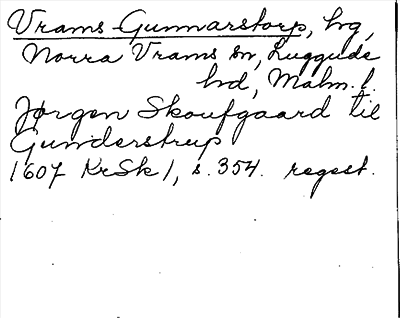 Vrams-Gunnarstorp, hg,
Norra Vrams sn, Luggude
hd, Malm. l.
Jørgen Skoufgaard til
Gunderstrup
1607 KrSk 1, s. 354. regest.